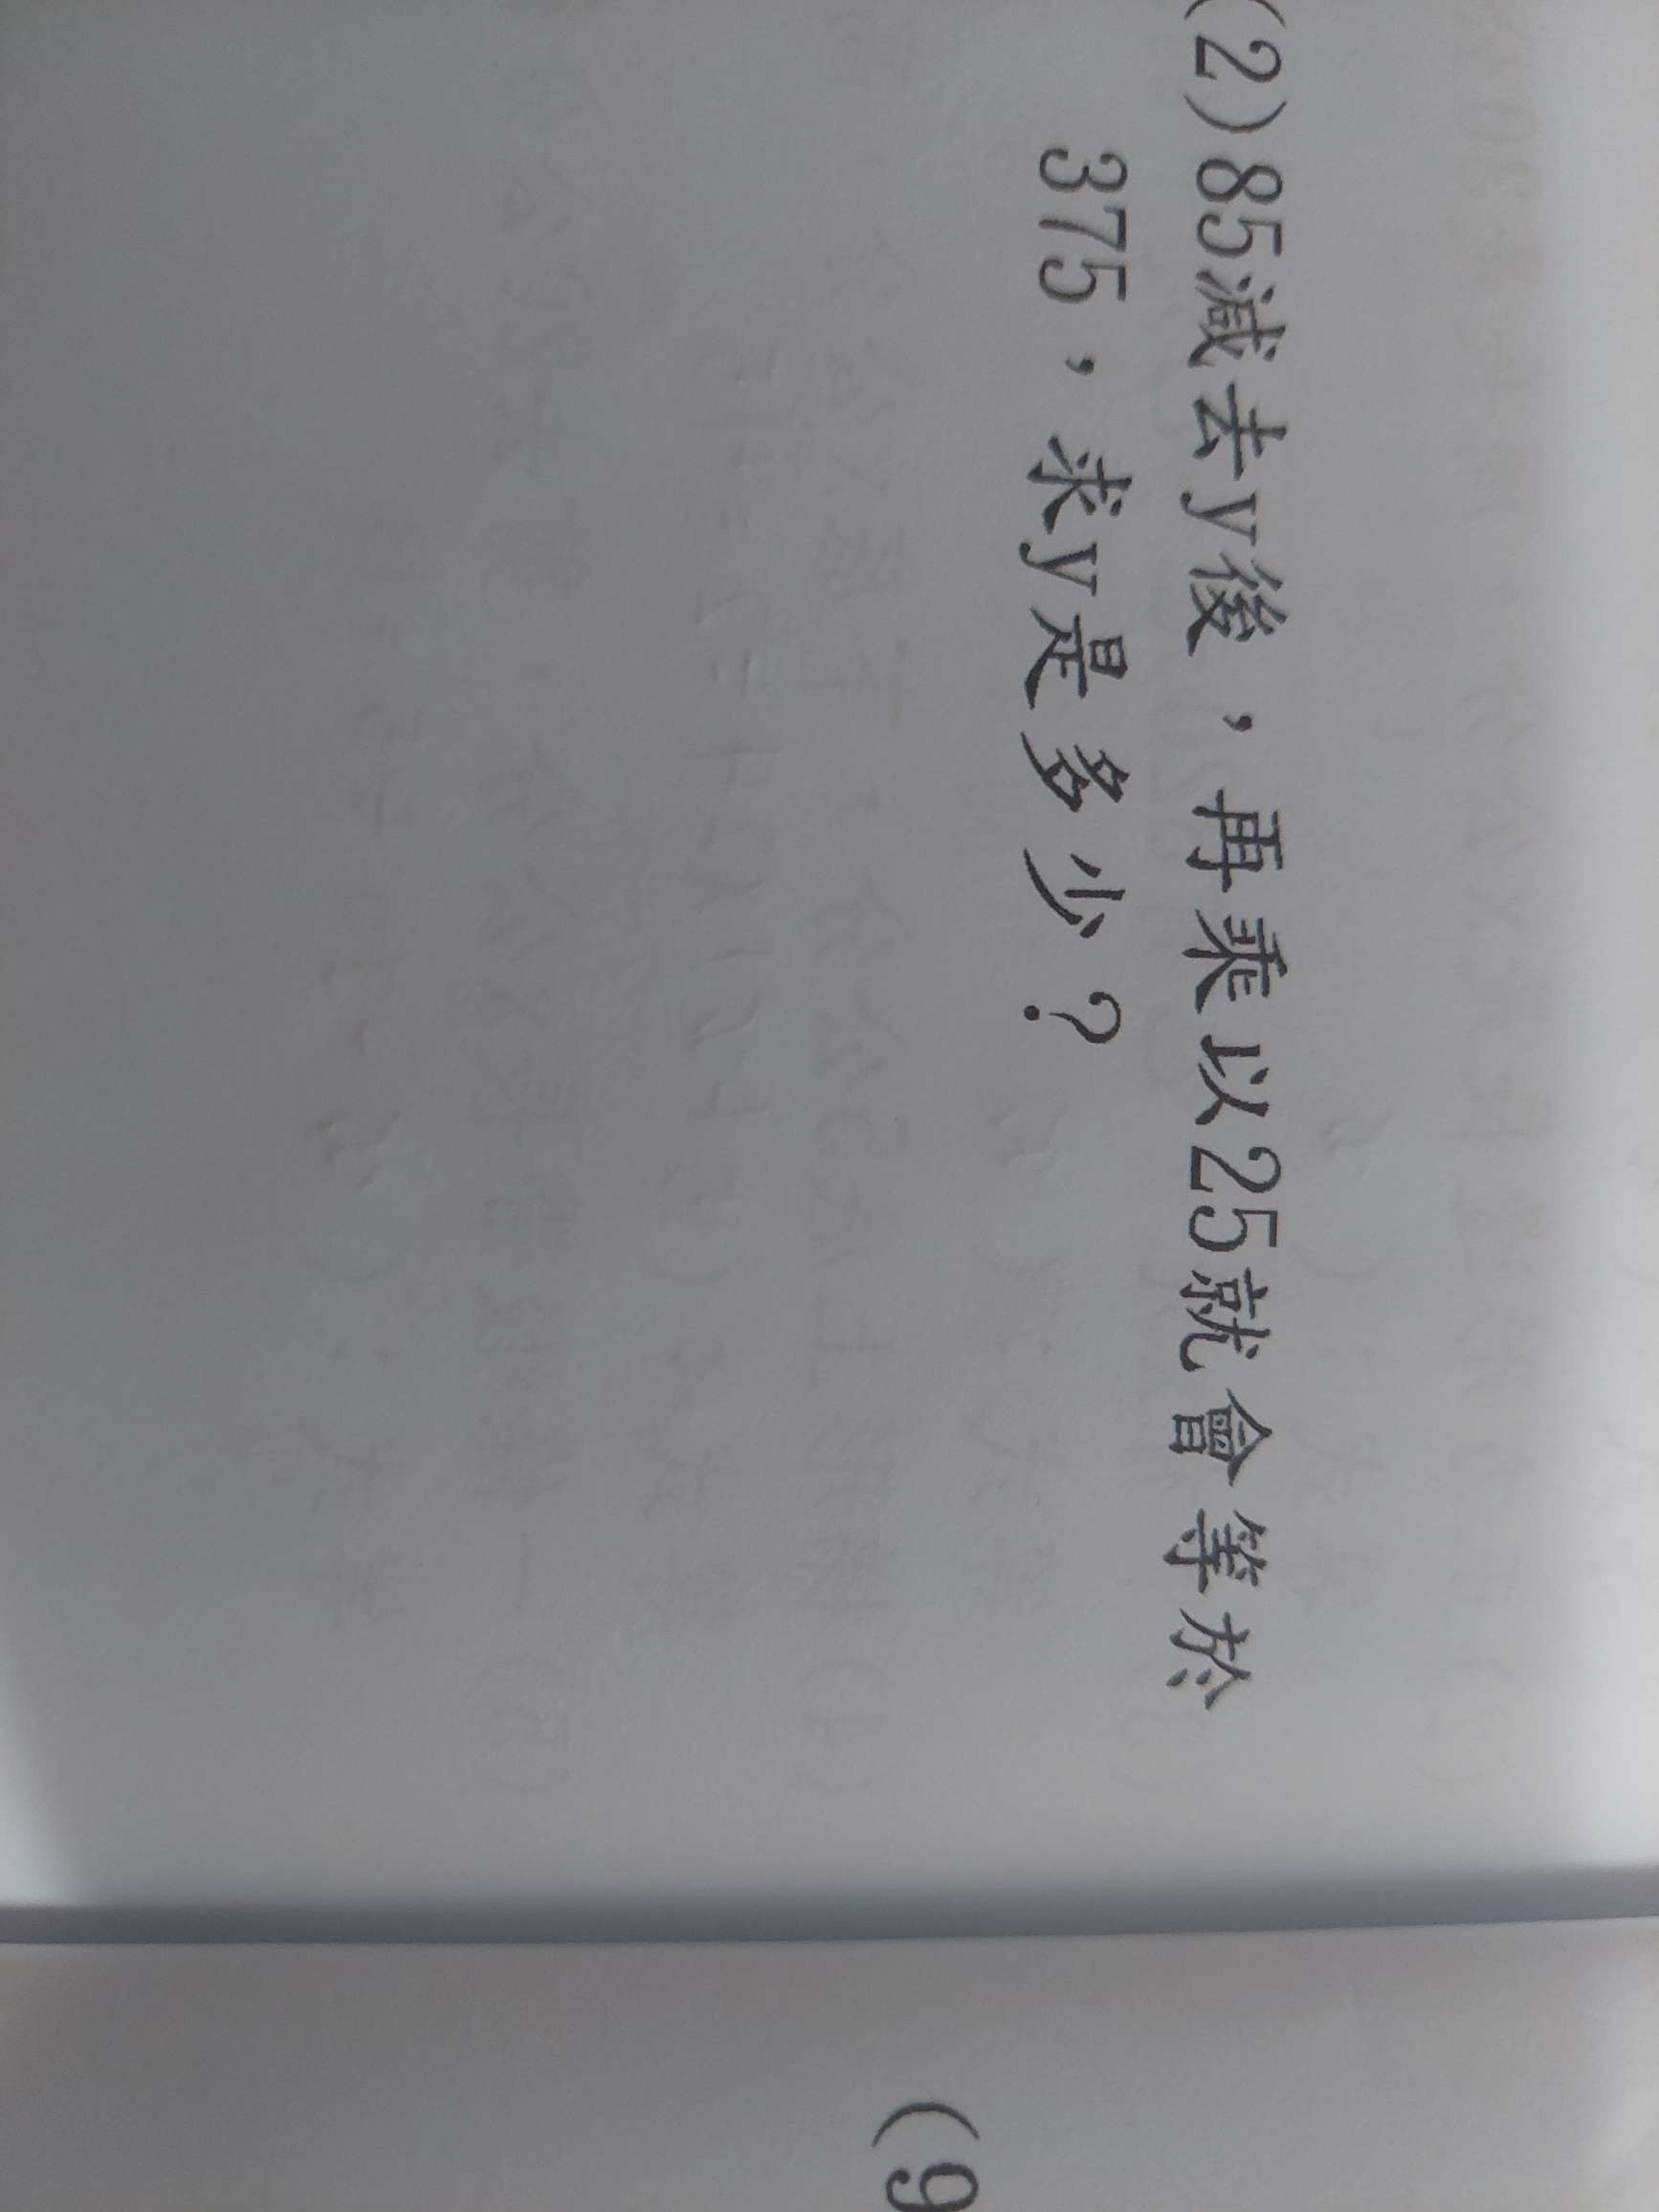 (2)85減去y後，再乘以25就會等於
375，求y是多少？
(9